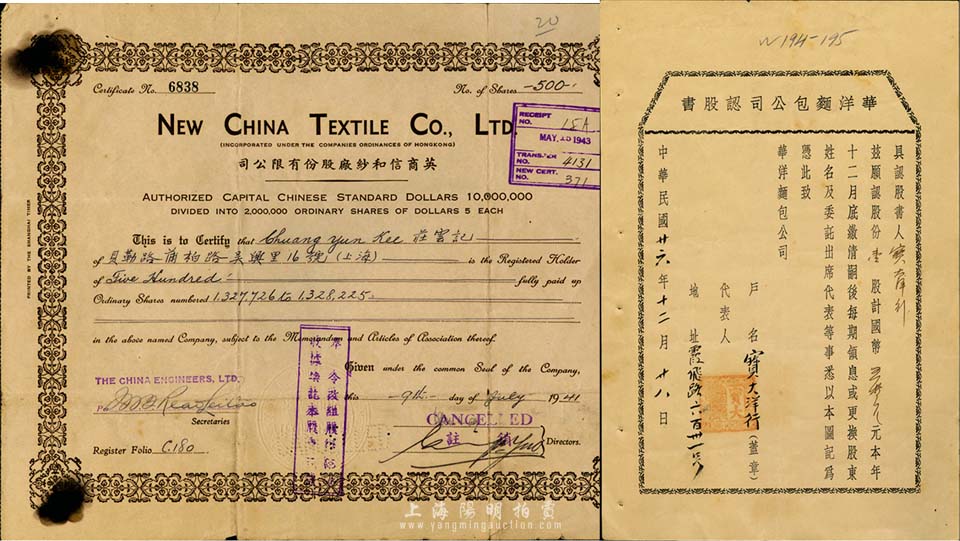 20
Certificate No. 6838
No. of Shares -500-
NEW CHINA TEXTILE CO., LTD.
(INCORPORATED UNDER THE COMPANIES ORDINANCES OF HONGKONG)
司公限有份股廠紗和信商英
RECEIPT NO. 15A
MAY 15 1943
TRANSFER NO. 4131
NEW CERT. NO. 371
AUTHORIZED CAPITAL CHINESE STANDARD DOLLARS 10,000,000
DIVIDED INTO 2,000,000 ORDINARY SHARES OF DOLLARS 5 EACH
This is to Certify that Chuang Yun Kee 莊雲記
of 貝勒路蒲柏路吳興里16號(上海) is the Registered Holder
of Five Hundred fully paid up
Ordinary Shares numbered 1,327,726 to 1,328,225
in the above named Company, subject to the Memorandum and Articles of Association thereof.
Given under the common Seal of the Company,
this 9th day of July 1941
THE CHINA ENGINEERS, LTD.
Secretaries
CANCELLED
註銷
Directors.
Register Folio C.180
PRINTED BY THE SHANGHAI TIMES
N 194-195
書股認司公包麵洋華
具認股書人寶大洋行
茲願認股份壹股計國幣元本年
十二月底繳清嗣後每期領息或更換股東
姓名及委託出席代表等事悉以本圖記爲
憑此致
華洋麵包公司
戶名寶大洋行(蓋章)
代表人
地址霞飛路六百卅一號
中華民國廿六年十二月廿八日
上海陽明拍賣
www.yangmingauction.com